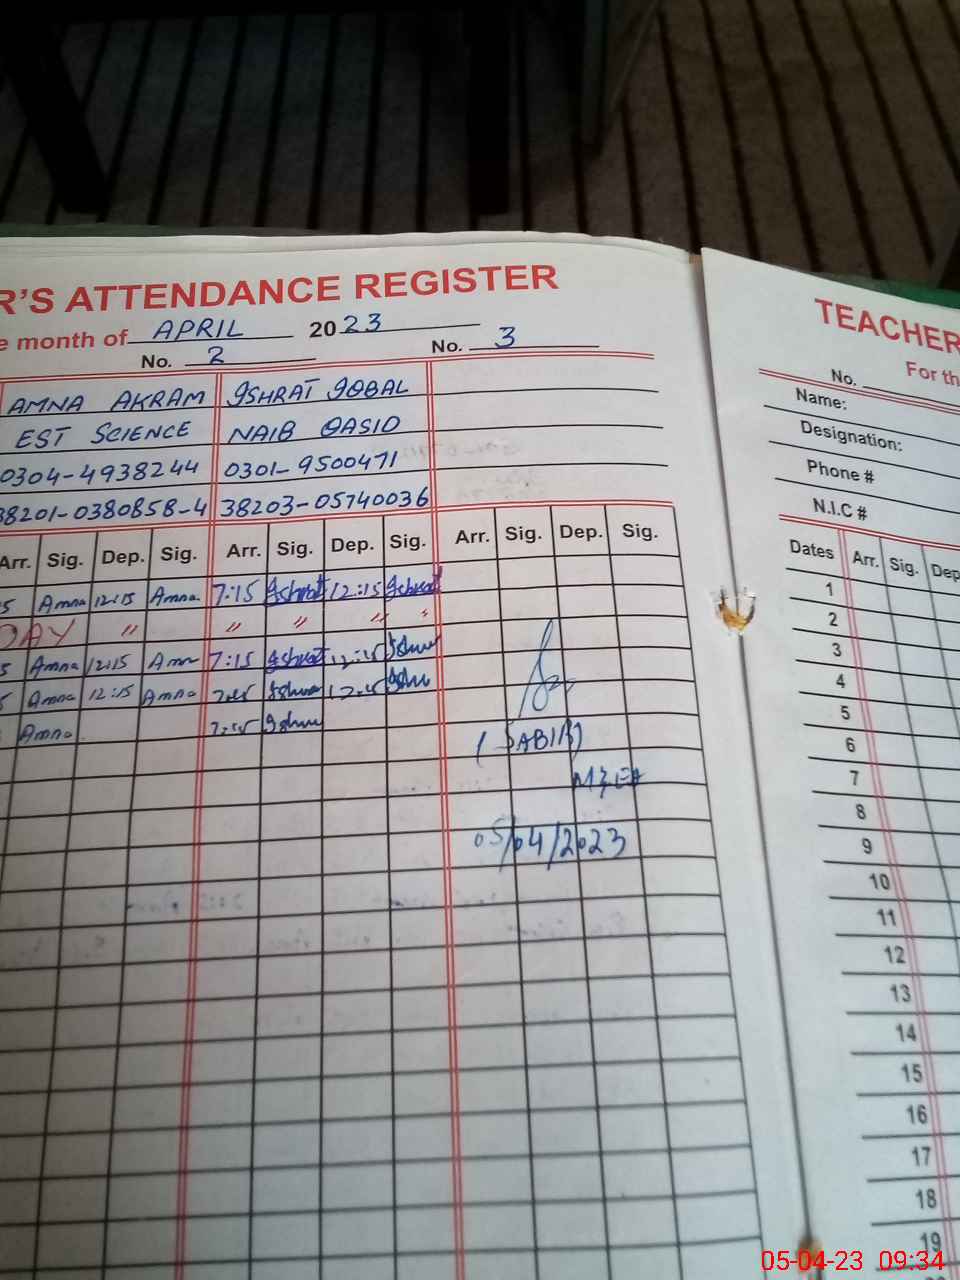 R'S ATTENDANCE REGISTER
e month of APRIL 2023
No. 2 No. 3
AMNA AKRAM ISHRAT IQBAL
EST SCIENCE NAIB QASID
0304-4938244 0301-9500471
38201-0380858-4 38203-05740036
Arr. Sig. Dep. Sig. Arr. Sig. Dep. Sig. Arr. Sig. Dep. Sig.
5 Amna 12:15 Amna 7:15 Ishrat 12:15 Ishrat
DAY " " " " "
5 Amna 12:15 Amn 7:15 Ishrat 12:15
5 Amna 12:15 Amna
Amna
(SABIR)
05/04/2023
TEACHER
For th
No.
Name:
Designation:
Phone #
N.I.C #
Dates Arr. Sig. Dep
1
2
3
4
5
6
7
8
9
10
11
12
13
14
15
16
17
18
19
05-04-23 09:34